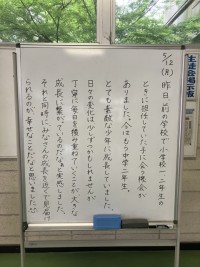 5/12(月)
昨日、前の学校で小学校一・二年生の
ときに担任していた子に会う機会が
ありました。今はもう中学二年生。
とても素敵な少年に成長していました。
日々の変化は少しずつかもしれませんが
丁寧に毎日を積み重ねていくことが大きな
成長に繋がっているのだなぁと実感しました。
それと同時にみなさんの成長を近くで見届け
られるのが幸せなことだなと思いました